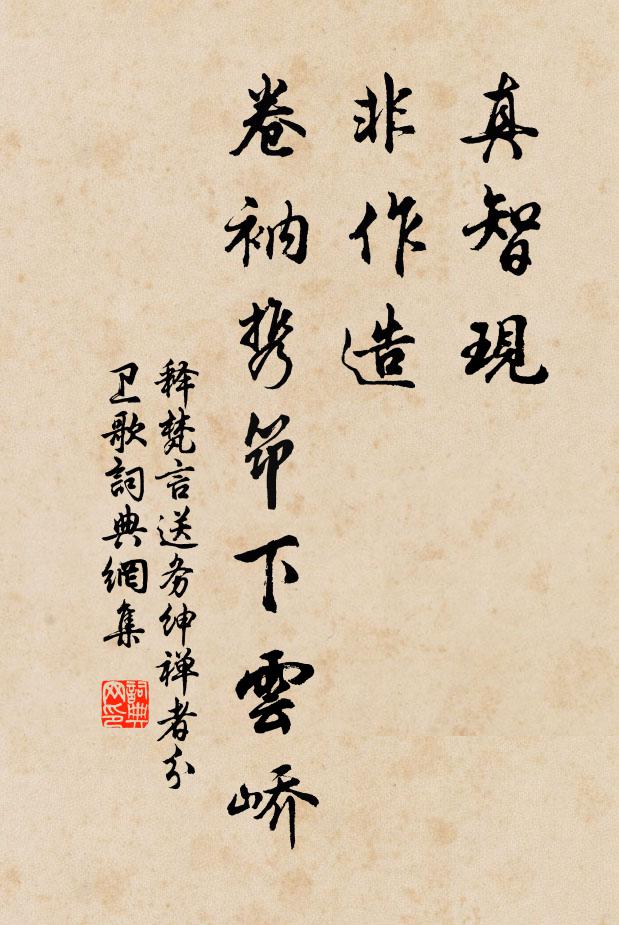 真智現
非作造
卷衲携笻下雲峤
释梵言送务绅禅者分
卫歌詞典網集
詞典网印